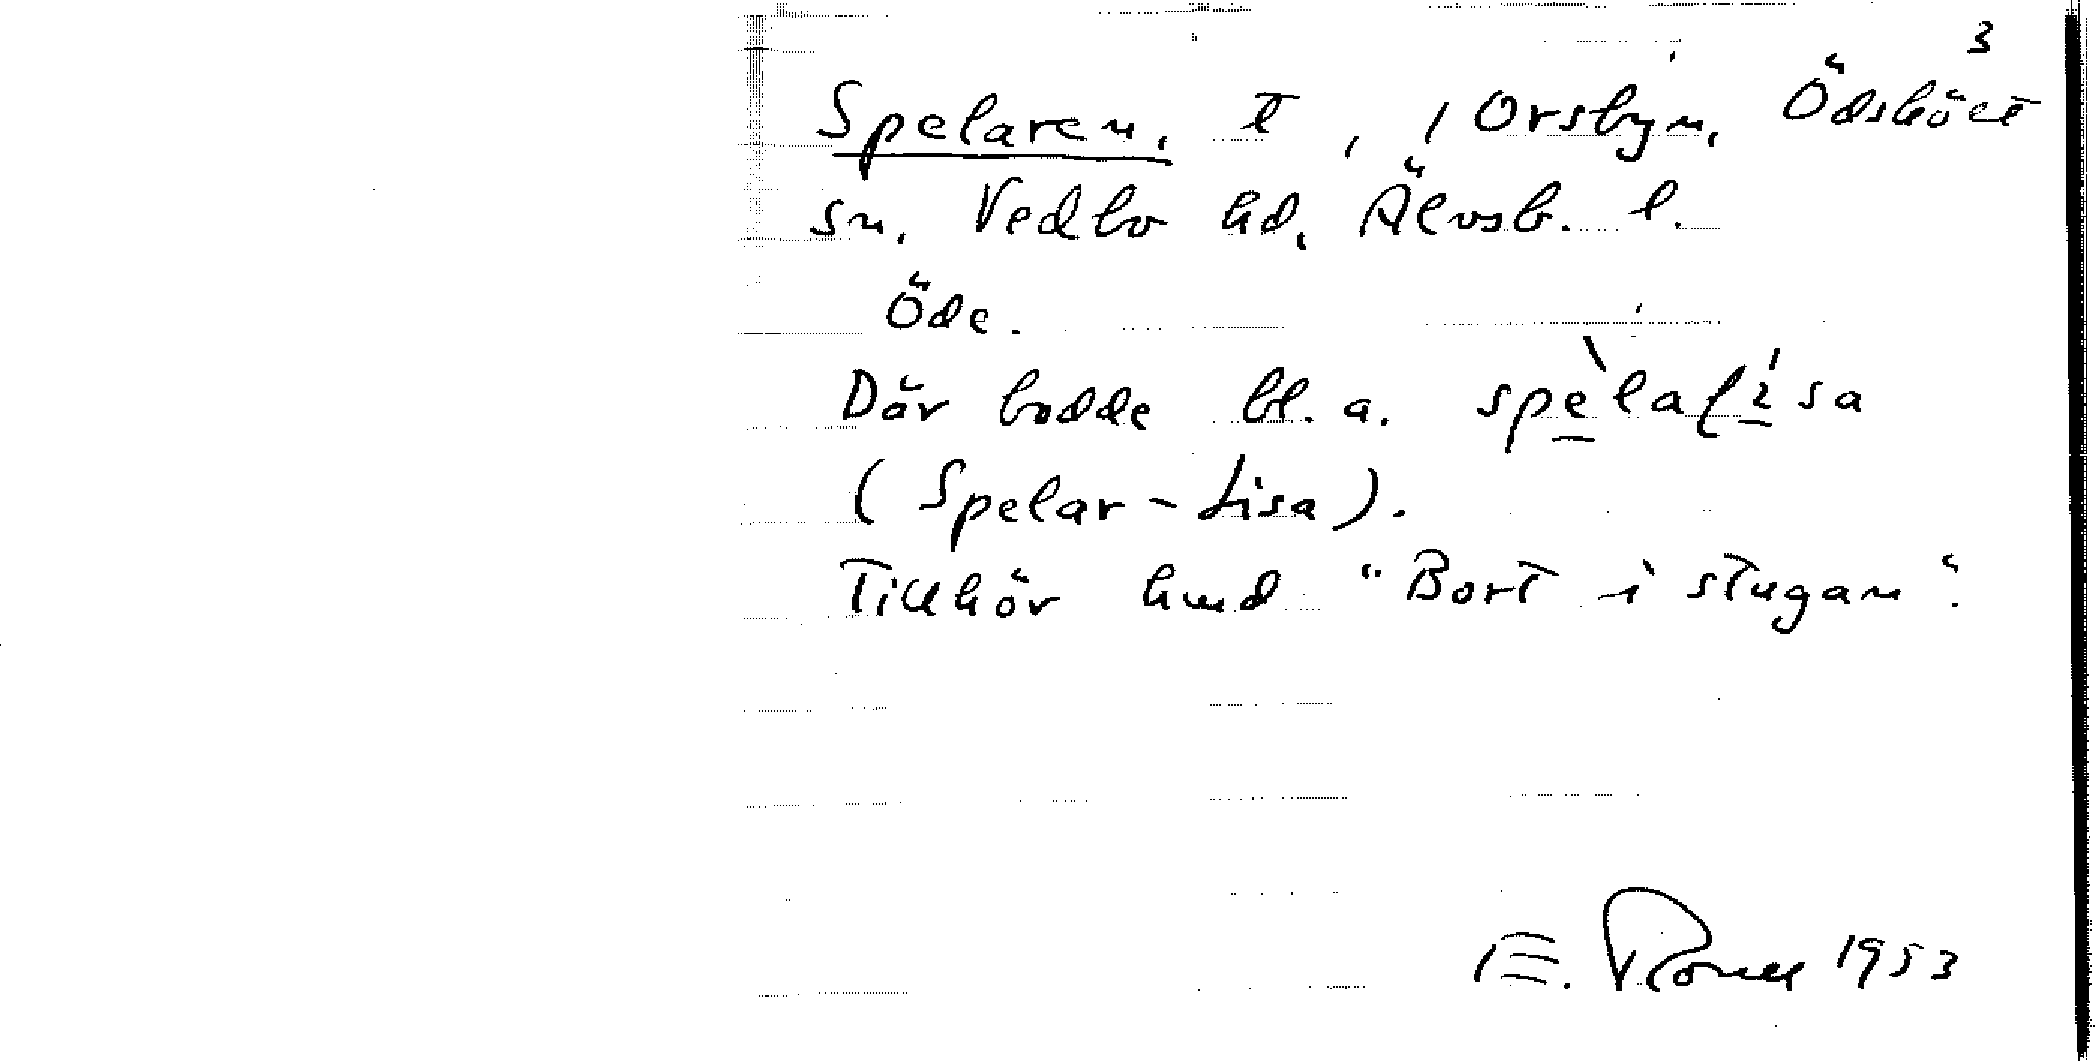 3
Spelaren, t, i Orsbyn, Ödsköl͞t
sn, Vedbo hd, Älvsb. l.
Öde.
Där bodde bl. a. spèlaľísa
(Spelar-Lisa).
Tillhör hmd "Bort i stugan".
E. 1953